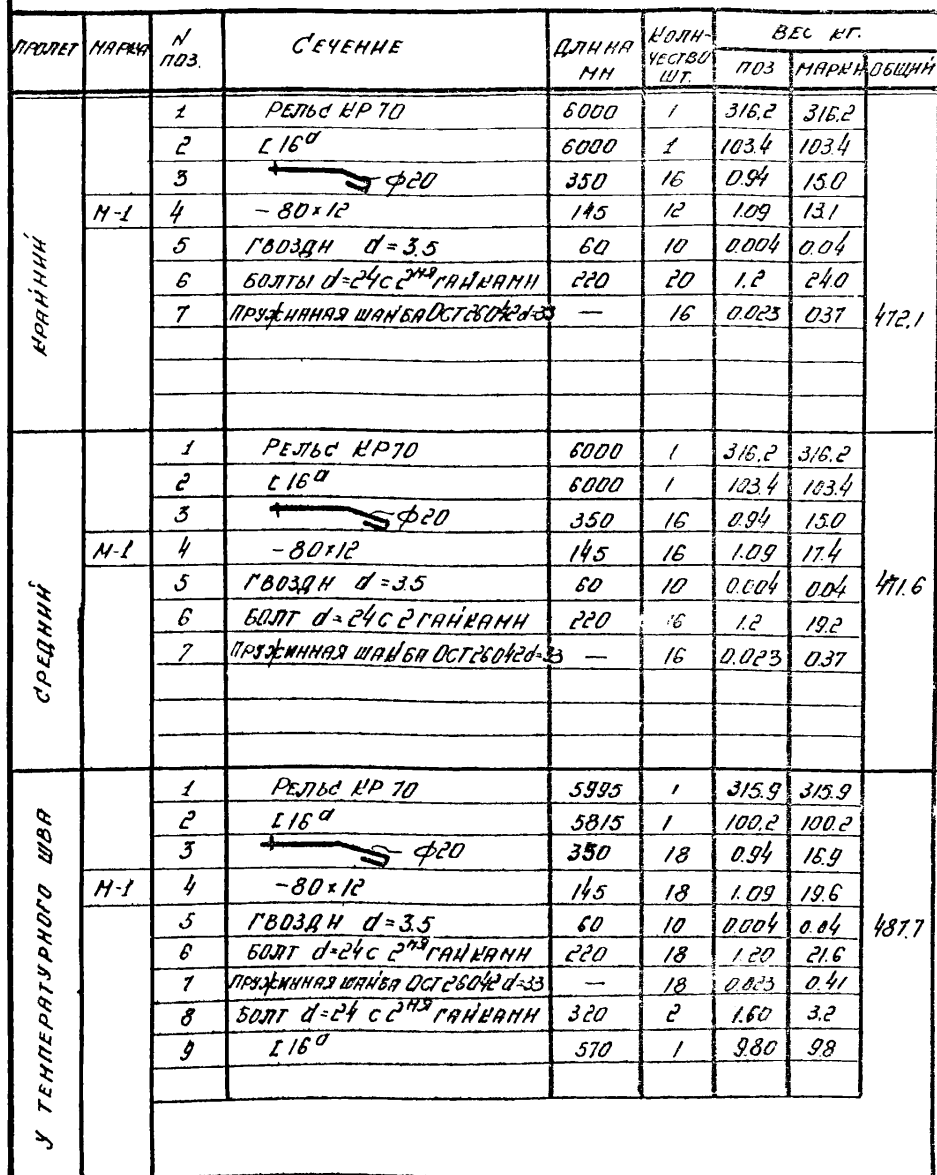 ПРОЛЕТ МАРКА N ПОЗ. СЕЧЕНИЕ ДЛИНА ММ КОЛИ-ЧЕСТВО ШТ. ВЕС КГ.
ПОЗ МАРКИ ОБЩИЙ
КРАЙНИЙ
М-1
1 РЕЛЬС КР 70 6000 1 316,2 316,2
2 [ 16а 6000 1 103.4 103.4
3 ϕ20 350 16 0.94 15.0
4 - 80×12 145 12 1.09 13.1
5 ГВОЗДИ d = 3.5 60 10 0.004 0.04
6 БОЛТЫ d=24 С 2МЯ ГАЙКАМИ 220 20 1.2 24.0
7 ПРУЖИННАЯ ШАЙБА ОСТ 26042 d=33 — 16 0.023 0.37
472.1
СРЕДНИЙ
М-1
1 РЕЛЬС КР70 6000 1 316.2 316.2
2 [ 16а 6000 1 103.4 103.4
3 ϕ20 350 16 0.94 15.0
4 - 80×12 145 16 1.09 17.4
5 ГВОЗДИ d = 3.5 60 10 0.004 0.04
6 БОЛТ d=24 С 2 ГАЙКАМИ 220 16 1.2 19.2
7 ПРУЖИННАЯ ШАЙБА ОСТ 26042 d=33 — 16 0.023 0.37
471.6
У ТЕМПЕРАТУРНОГО ШВА
М-1
1 РЕЛЬС КР 70 5995 1 315.9 315.9
2 [ 16а 5815 1 100.2 100.2
3 ϕ20 350 18 0.94 16.9
4 - 80×12 145 18 1.09 19.6
5 ГВОЗДИ d = 3.5 60 10 0.004 0.04
6 БОЛТ d=24 С 2МЯ ГАЙКАМИ 220 18 1.20 21.6
7 ПРУЖИННАЯ ШАЙБА ОСТ 26042 d=33 — 18 0.023 0.41
8 БОЛТ d=24 С 2МЯ ГАЙКАМИ 320 2 1.60 3.2
9 [ 16а 570 1 9.80 9.8
487.7